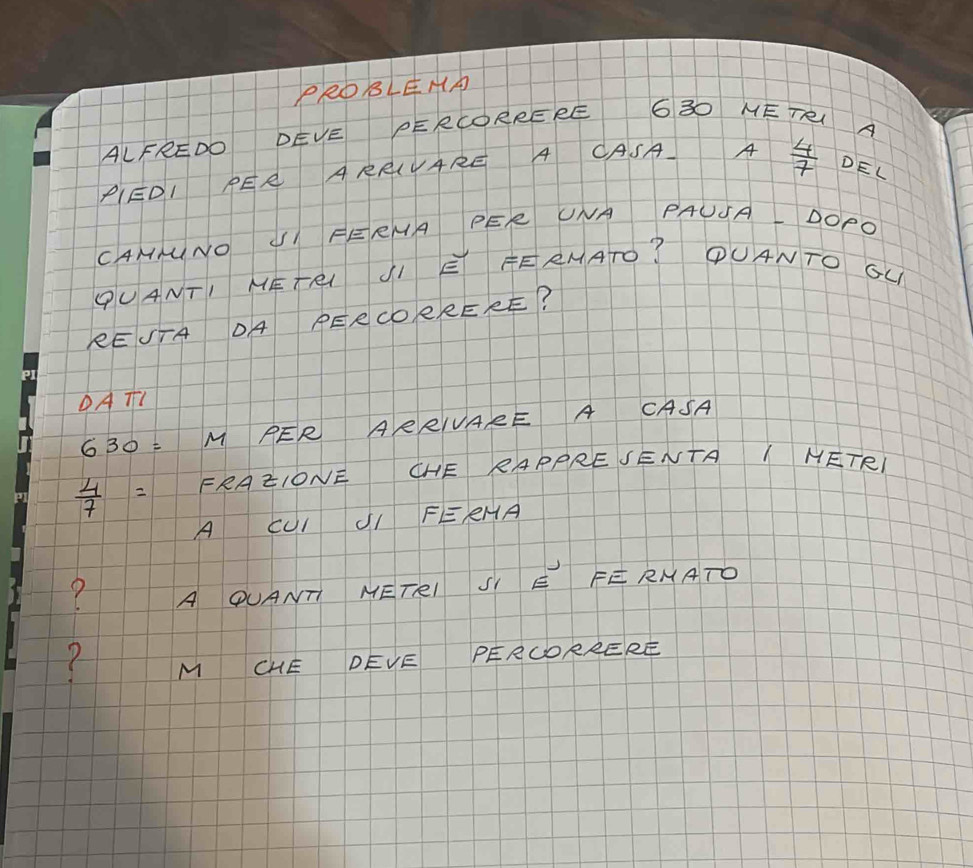 PROBLEMA
ALFREDO DEVE PERCORRERE 630 METRI A
PIEDI PER ARRIVARE A CASA. A 4/7 DEL
CAMMINO SI FERMA PER UNA PAUSA. DOPO
QUANTI METRI SI È FERMATO? QUANTO GLI
RESTA DA PERCORRERE?
DATI
630 = M PER ARRIVARE A CASA
4/7 = FRAZIONE CHE RAPPRESENTA I METRI
A CUI SI FERMA
? A QUANTI METRI SI È FERMATO
? M CHE DEVE PERCORRERE